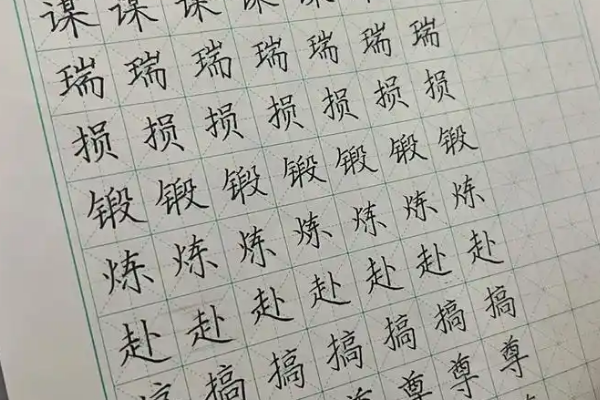 谋谋谋谋谋
瑞瑞瑞瑞瑞瑞瑞
损损损损损损损
锻锻锻锻锻锻锻
炼炼炼炼炼炼炼
赴赴赴赴赴赴赴
搞搞搞搞搞搞搞
尊尊尊尊